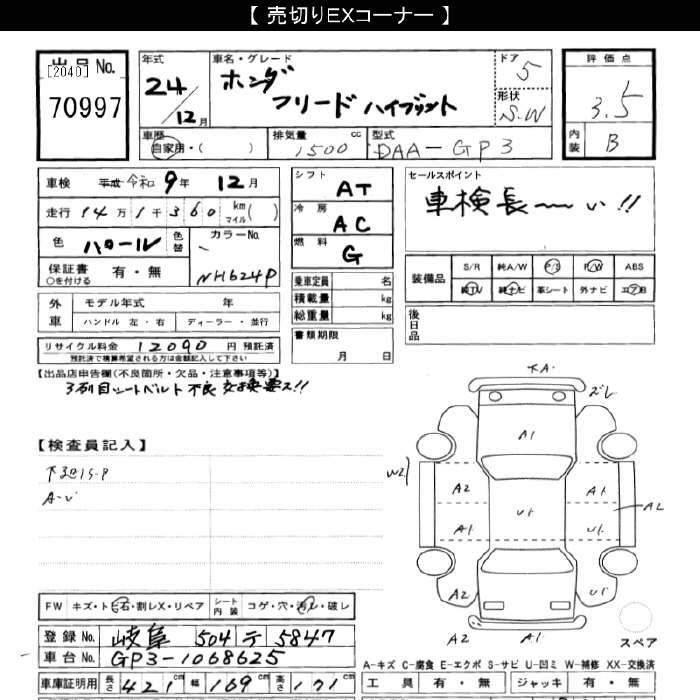 【 売切りEXコーナー 】
出品 No.
[2040]
70997
年式
24/12月
車名・グレード
ホンダ
フリード ハイブリット
ドア
5
形状
S.W
評価点
3.5
内装
B
車歴
自家用・( )
排気量 cc
1500
型式
DAA-GP3
車検 平成 令和 9年 12月
走行 14万1千360 km マイル( )
色 パール 色替
カラーNo.
NH624P
保証書 有・無
○を付ける
シフト
AT
冷房
AC
燃料
G
セールスポイント
車検長〜い!!
装備品 S/R 純A/W P/S P/W ABS
純TV 純ナビ 革シート 外ナビ エアB
外車 モデル年式 年
ハンドル 左・右 ディーラー・並行
乗車定員 名
積載量 kg
総重量 kg
後日品
リサイクル料金 12090 円 預託済
預託済で積算希望される方は金額記入して下さい
書類期限
月 日
【出品店申告欄(不良箇所・欠品・注意事項等)】
3列目シートベルト不良 交換要ス!!
【検査員記入】
下廻りS-P
下A1
ズレ
A1
W2
A2
A1
U1
A2
A1
U1
A2
U1
A2
スペア
FW キズ・ト石・割レX・リペア シート内装 コゲ・穴・汚レ・破レ
登録 No. 岐阜 504 テ 5847
車台 No. GP3-1068625
A-キズ C-腐食 E-エクボ S-サビ U-凹ミ W-補修 XX-交換済
車庫証明用 長さ 421 cm 幅 169 cm 高さ 171 cm
工具 有・無 ジャッキ 有・無